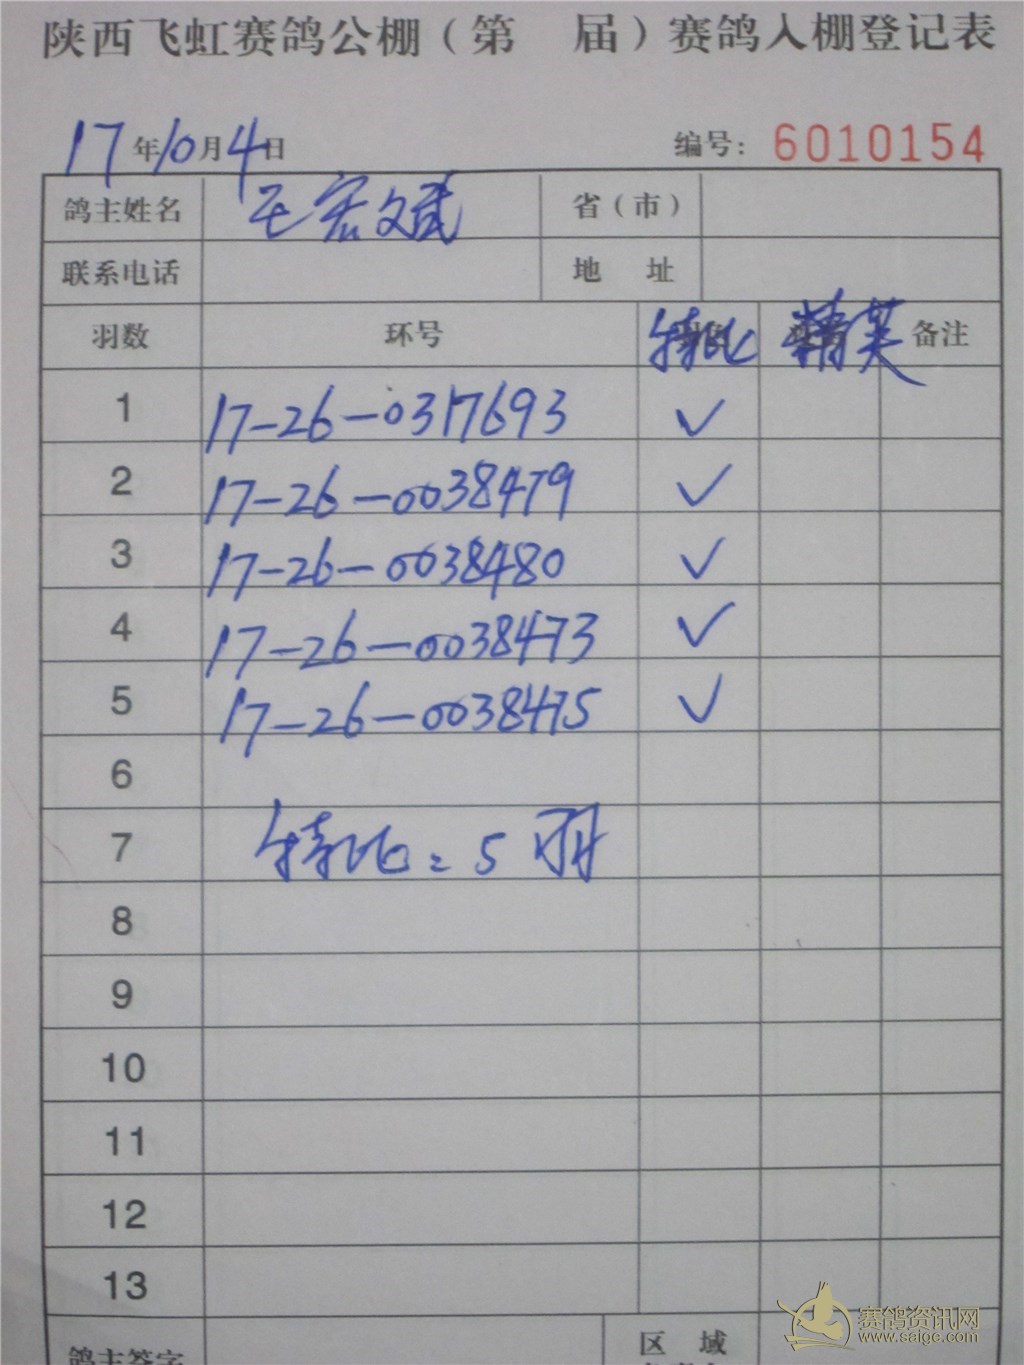 陕西飞虹赛鸽公棚（第 届）赛鸽入棚登记表
17年10月4日 编号：6010154
鸽主姓名 王宏斌 省（市）
联系电话 地 址
羽数 环号 特比 精英 备注
1 17-26-0317693 ✓
2 17-26-0038479 ✓
3 17-26-0038480 ✓
4 17-26-0038473 ✓
5 17-26-0038475 ✓
6
7 特比：5羽
8
9
10
11
12
13
鸽主签字 区 域
赛鸽资讯网
www.saige.com